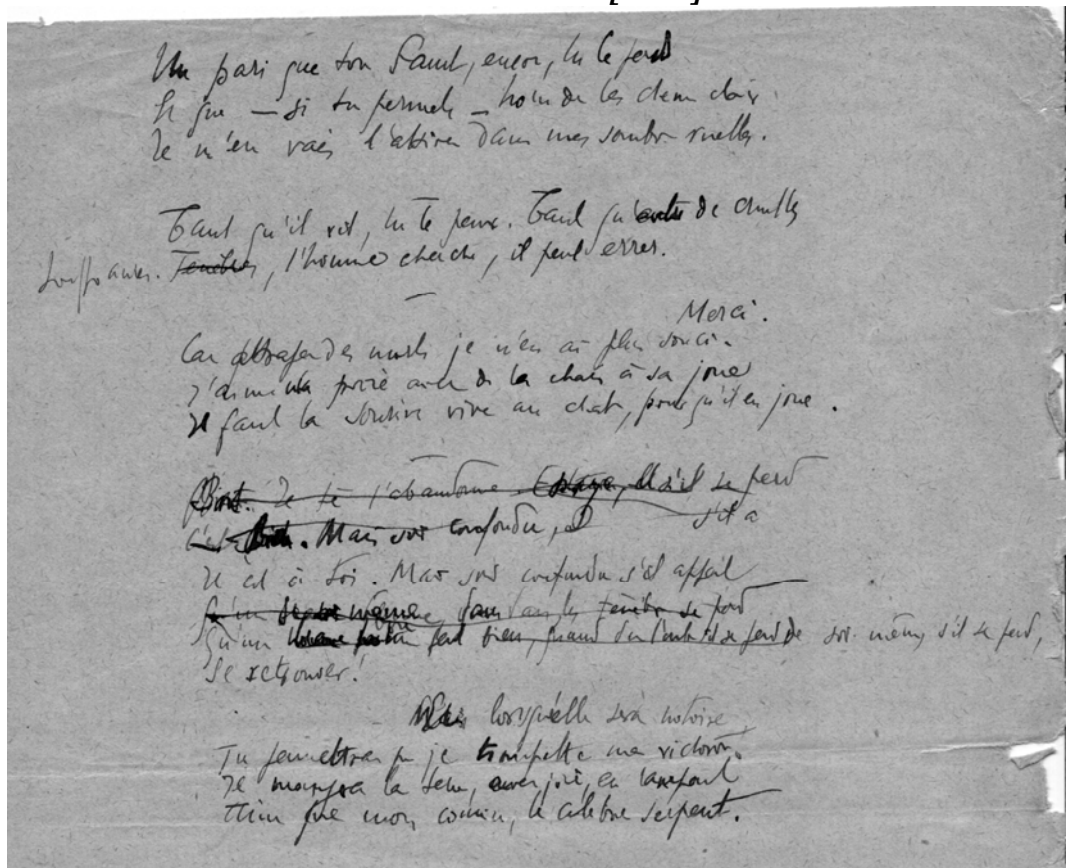 Un pari que ton Faust, encor, tu le perds
Si que – si tu permets – hors de tes
Je m'en vais l'attirer dans mes sombres ruelles.
Tant qu'il vit, tu le peux. Tant qu' de cruelles
Souffrances. Ténèbres, l'homme cherche, il peut errer.
Merci.
Car attraper des morts je n'en ai plus souci.
J'aime ma proie avec de la chair à sa joue
Il faut la souris vive au chat, pour qu'il en joue.
Bon. Je te l'abandonne. Essaye, et s'il se perd
C'est bien. Mais sois confondu, s'il a
Il est à toi. Mais sois confondu s'il appert
Qu'un même, dans les ténèbres se perd
Qu'un homme peut bien, quand se perd de soi-même, s'il se perd,
Se retrouver!
Mais lorsqu'elle sera notoire
Tu permettras que je trompette ma victoire.
Il mangera la terre, avec joie, en rampant
Ainsi que mon cousin, le célèbre serpent.